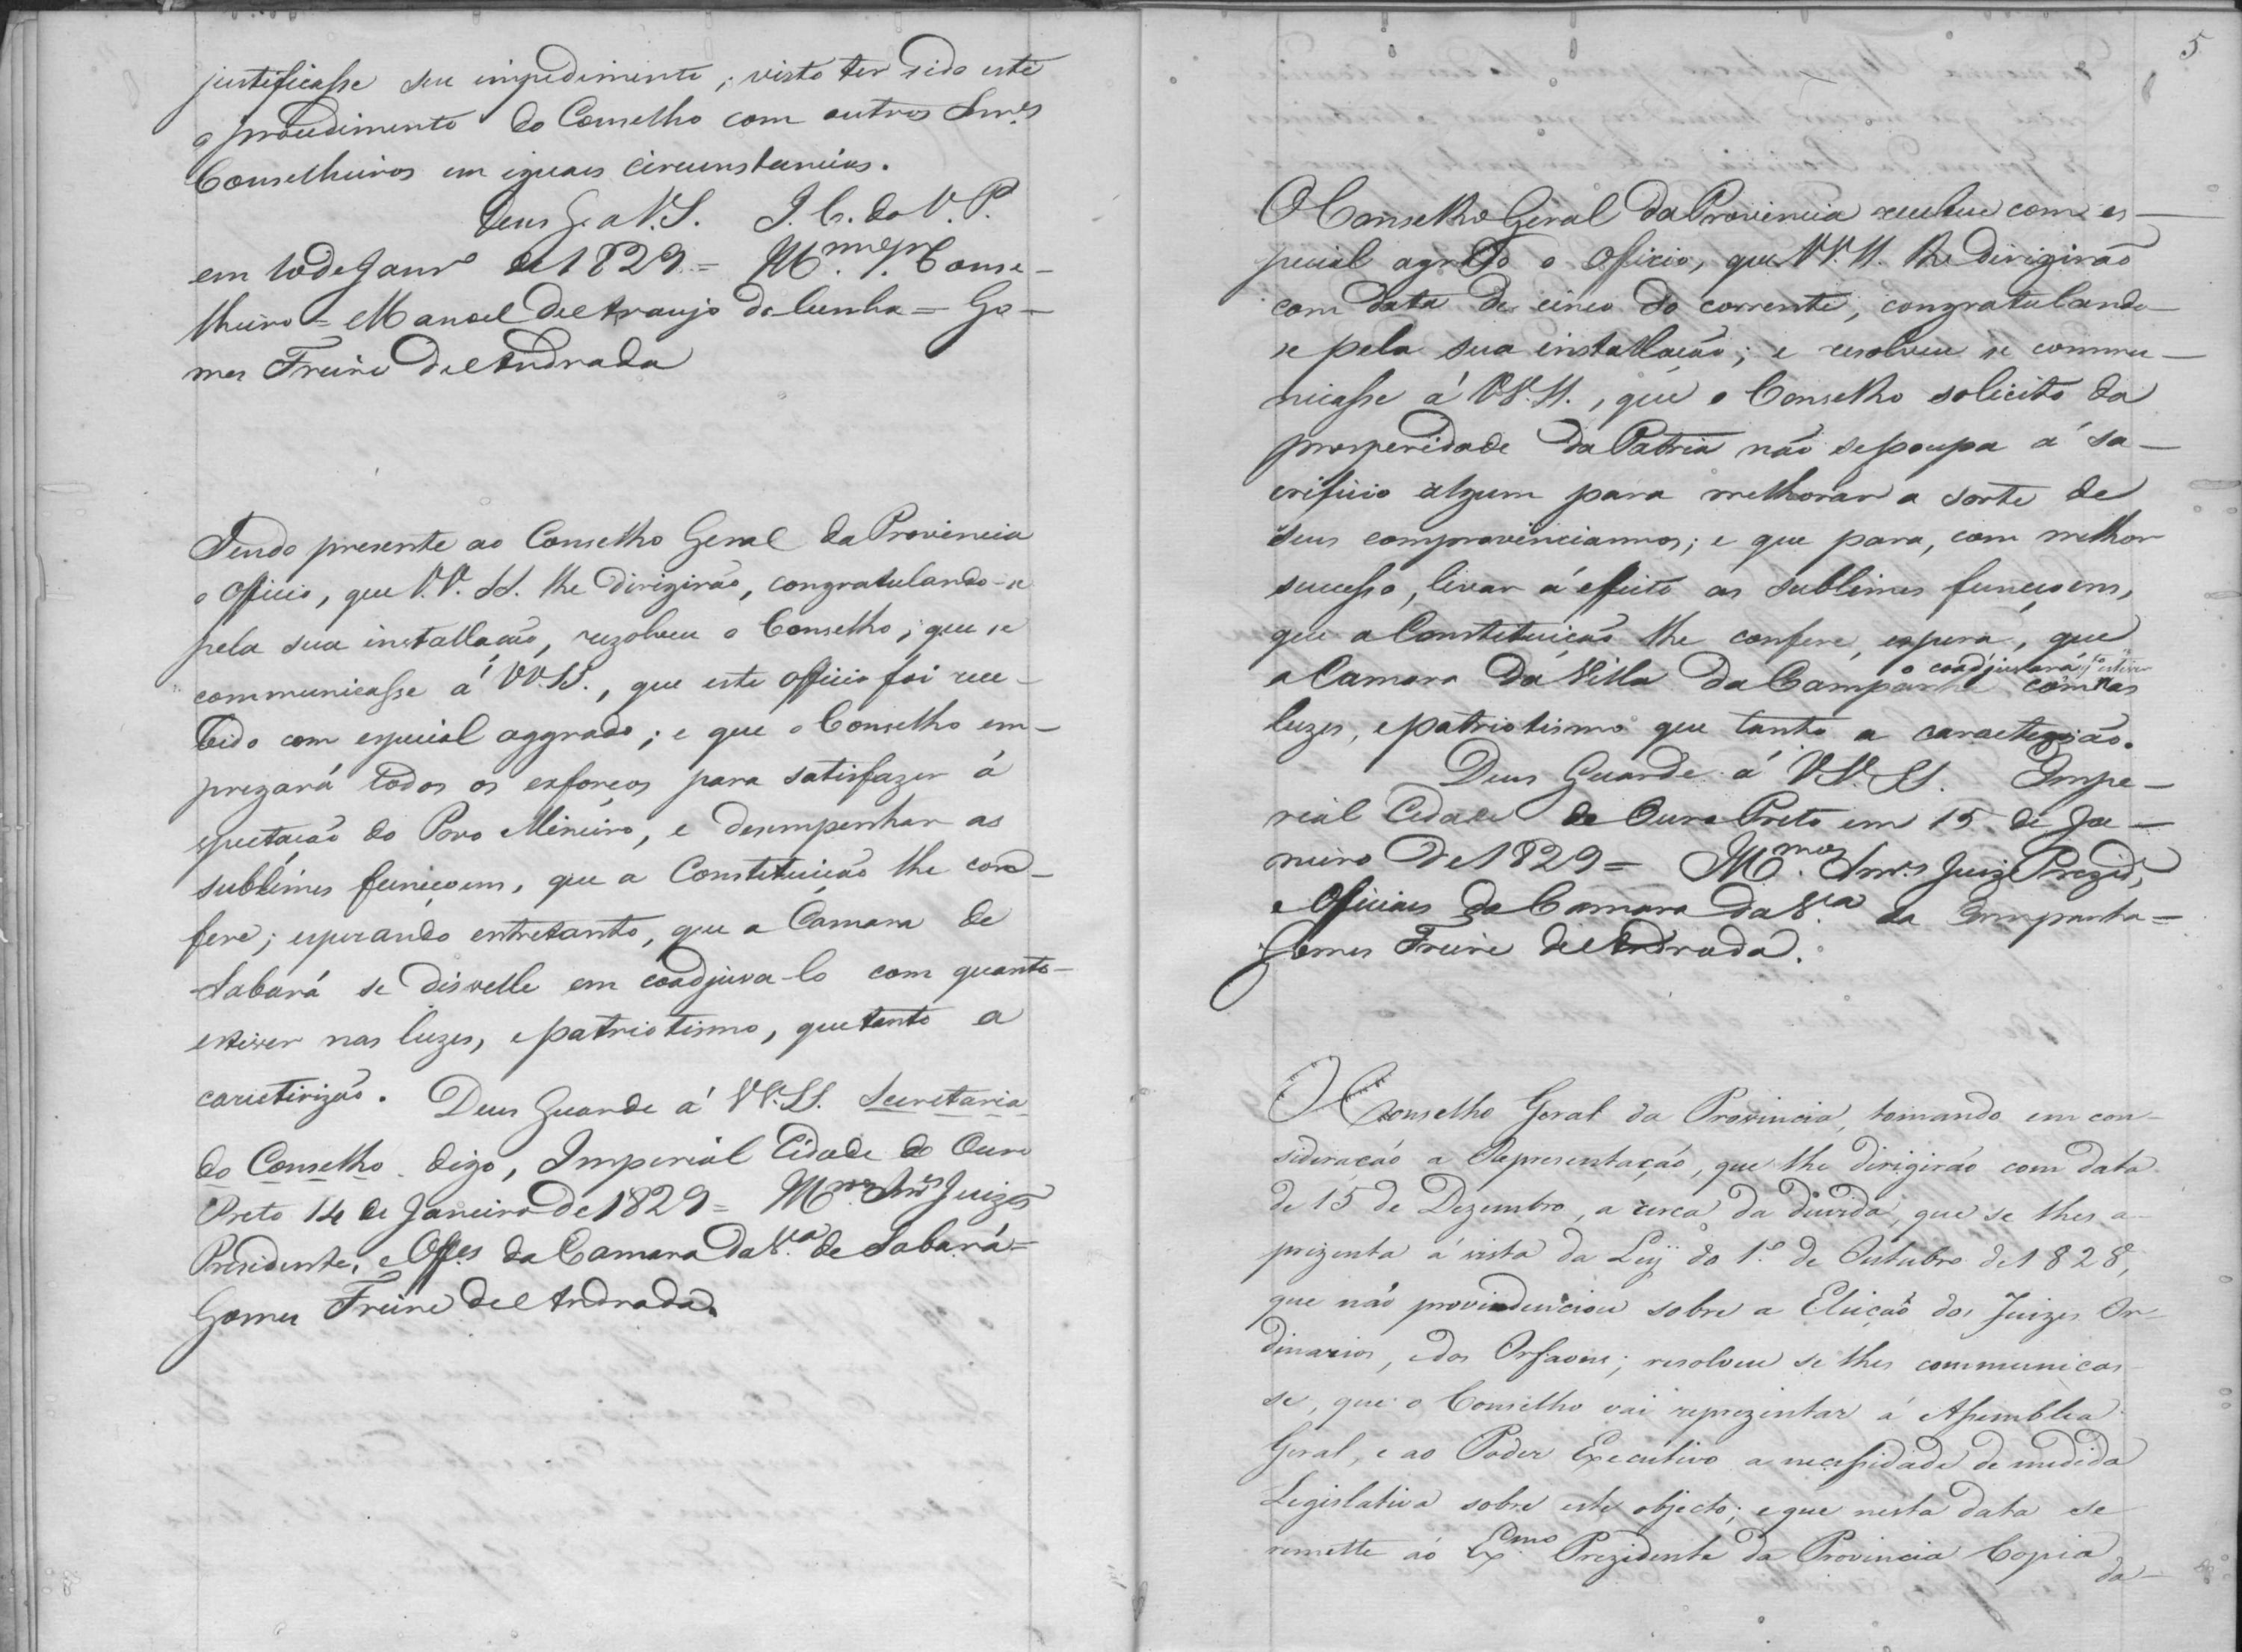 justificasse seu impedimento; visto ter sido este
o procedimento do Conselho com outros Snrs.
Conselheiros em iguaes circunstancias.
Deus G. a V.S. I. C. do O. P.
em 10 de Janro de 1829 = Conse-
lheiro = Manoel de Araujo da Cunha = Go-
mes Freire de Andrada
Sendo presente ao Conselho Geral da Provincia
o officio, que V.V. SS. lhe dirigirão, congratulando-se
pela sua installação, rezolveu o Conselho, que se
communicasse á VV.SS., que este officio foi rece-
bido com especial aggrado; e que o Conselho em-
pregará todos os esforços para satisfazer á
espectação do Povo Mineiro, e desempenhar as
sublimes funcçoens, que a Constituição lhe con-
fere; esperando entretanto, que a Camara de
Sabará se disvelle em coadjuva-lo com quanto
estiver nas luzes, e patriotismo, que tanto a
caracterizão. Deus Guarde á VV.SS. Secretaria
do Conselho digo, Imperial Cidade do Ouro
Preto 14 de Janeiro de 1829 = Mmos Snrs Juizes
Presidente, e Offes da Camara da Va de Sabará =
Gomes Freire de Andrada.
5
O Conselho Geral da Provincia recebeu com es-
pecial agrado o officio, que VV.SS. lhe dirigirão
com data de cinco do corrente, congratulando-
se pela sua installação; e resolveu se commu-
nicasse á VV.SS., que o Conselho solicito da
prosperidade da Patria não se poupa á sa-
crificio algum para melhorar a sorte de
seus comprovincianos; e que para, com melhor
successo, levar á effeito as sublimes funcçoens,
que a Constituição lhe confere, espera, que
o coadjuvará qto estiver
a Camara da Villa da Campanha com as
luzes, e patriotismo que tanto a caracterizão.
Deus Guarde á VV.SS. Impe-
rial Cidade de Ouro Preto em 15 de Ja-
neiro de 1829 = Mmos Snrs Juiz Prezide,
e Officiaes da Camara da Va da Campanha =
Gomes Freire de Andrada.
O Conselho Geral da Provincia, tomando em con-
sideração a Representação, que lhe dirigirão com data
de 15 de Dezembro, a cerca da duvida, que se lhes a-
prezenta á vista da Ley do 1.o de Outubro de 1828,
que não providenciou sobre a Eleição dos Juizes Or-
dinarios, e dos Orfaons; resolveu se lhes communicas-
se, que o Conselho vai reprezentar á Assemblea
Geral, e ao Poder Executivo a necessidade de medida
Legislativa sobre este objecto; e que nesta data se
remette ao Exmo Prezidente da Provincia Copia
da